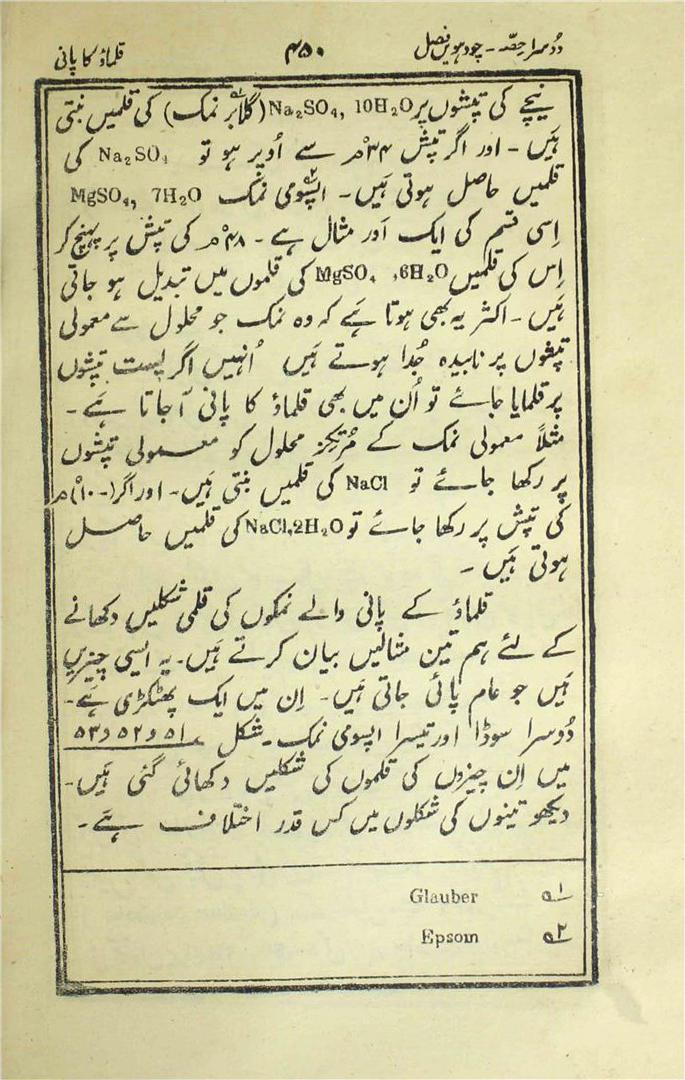 دوسرا حصّہ - چودہویں فصل ۴۵۰ قلماؤ کا پانی
نیچے کی تپشوں پر Na₂SO₄, 10H₂O (گلابر۱؎ نمک) کی قلمیں بنتی
ہیں - اور اگر تپش ۳۴°م سے اُوپر ہو تو Na₂SO₄ کی
قلمیں حاصل ہوتی ہیں - اپسومی۲؎ نمک MgSO₄, 7H₂O
اِسی قسم کی ایک اَور مثال ہے - ۴۸°م کی تپش پر پہنچ کر
اِس کی قلمیں MgSO₄ ,6H₂O کی قلموں میں تبدیل ہو جاتی
ہیں - اکثر یہ بھی ہوتا ہے کہ وہ نمک جو محلول سے معمولی
تپشوں پر نابیدہ جُدا ہوتے ہیں اُنہیں اگر پست تپشوں
پر قلمایا جائے تو اُن میں بھی قلماؤ کا پانی آ جاتا ہے -
مثلاً معمولی نمک کے مُرتکِز محلول کو معمولی تپشوں
پر رکھا جائے تو NaCl کی قلمیں بنتی ہیں - اور اگر (-۱۰°)م
کی تپش پر رکھا جائے تو NaCl,2H₂O کی قلمیں حاصل
ہوتی ہیں -
قلماؤ کے پانی والے نمکوں کی قلمی شکلیں دکھانے
کے لئے ہم تین مثالیں بیان کرتے ہیں - یہ ایسی چیزیں
ہیں جو عام پائی جاتی ہیں - اِن میں ایک پھٹکڑی ہے -
دُوسرا سوڈا اور تیسرا اپسومی نمک - شکل ۵۱ و ۵۲ و ۵۳
میں اِن چیزوں کی قلموں کی شکلیں دکھائی گئی ہیں -
دیکھو تینوں کی شکلوں میں کس قدر اختلاف ہے -
۱؎ Glauber
۲؎ Epsom